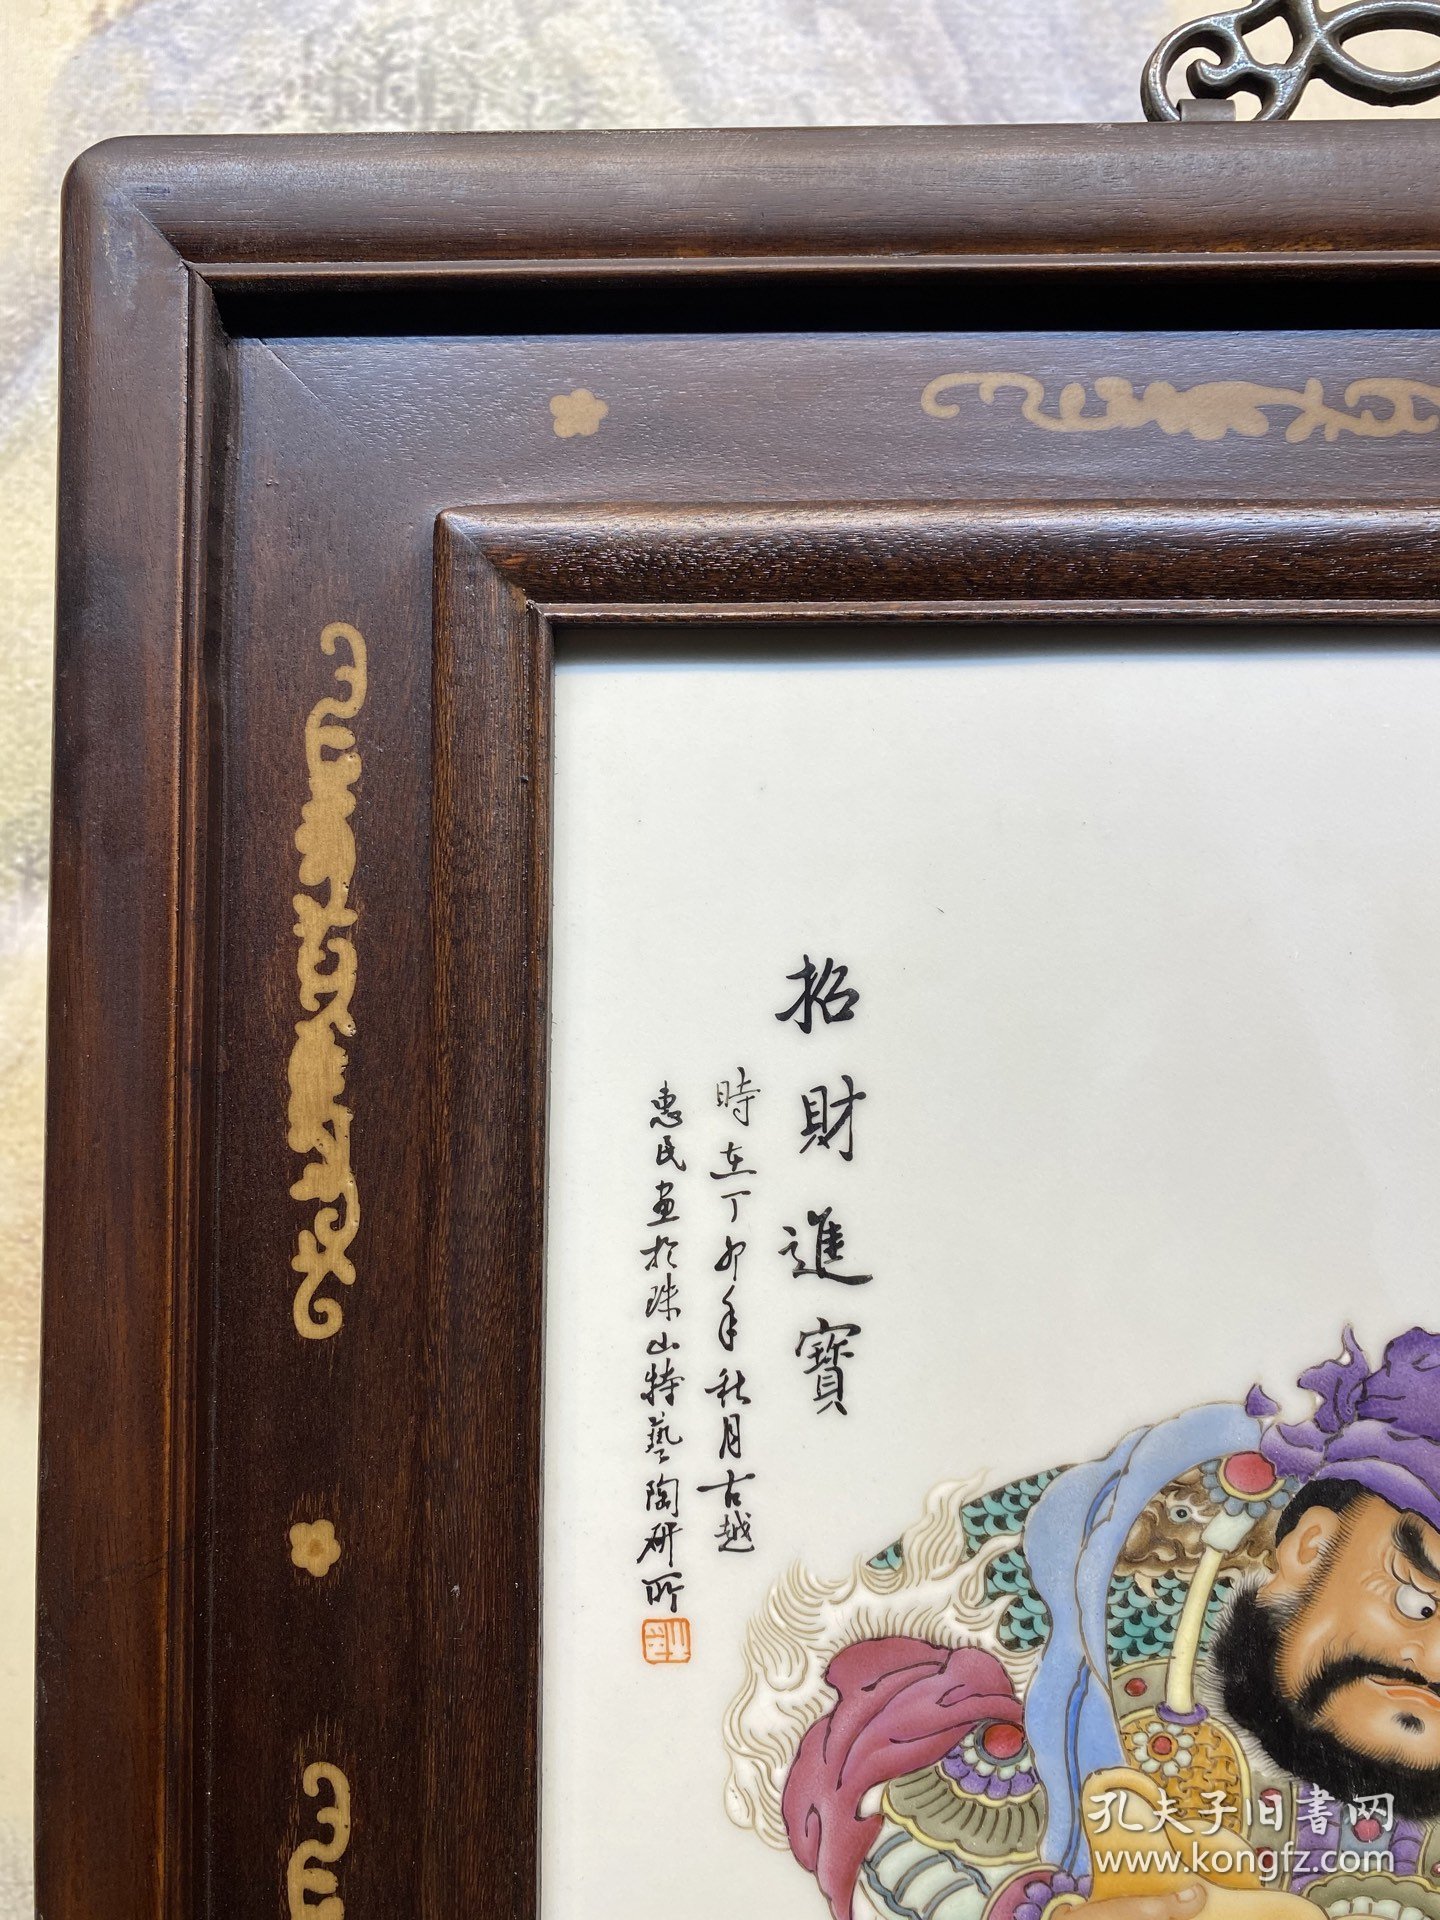 招財進寶
時在丁卯年秋月古越
惠民畫於珠山特藝陶研所
孔夫子旧書网
www.kongfz.com